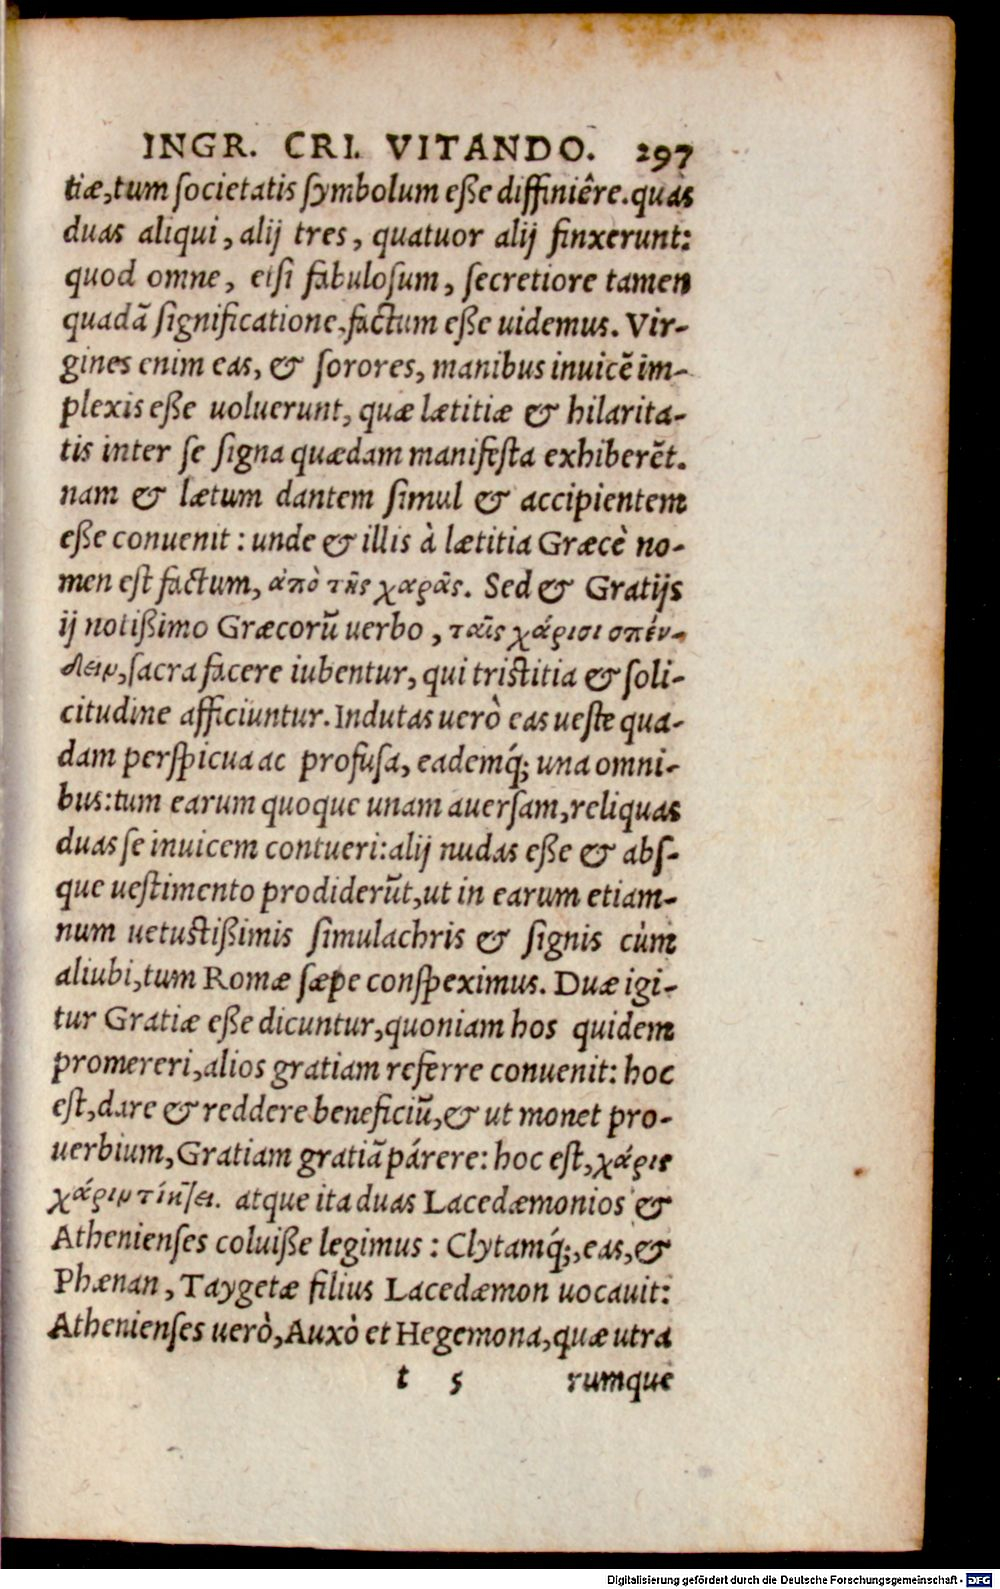 INGR. CRI. VITANDO. 297
tiæ,tum ſocietatis ſymbolum eſſe diffiniêre.quas
duas aliqui, alij tres, quatuor alij finxerunt:
quod omne, etſi fabuloſum, ſecretiore tamen
quadã ſignificatione,factum eſſe uidemus. Vir-
gines enim eas, & ſorores, manibus inuicẽ im-
plexis eſſe uoluerunt, quæ lætitiæ & hilarita-
tis inter ſe ſigna quædam manifeſta exhiberẽt.
nam & lætum dantem ſimul & accipientem
eſſe conuenit: unde & illis à lætitia Græcè no-
men eſt factum, ἀπὸ τῆς χαρᾶς. Sed & Gratijs
ij notißimo Græcorũ uerbo, ταῖς χάρισι σπέν-
δειν,ſacra facere iubentur, qui triſtitia & ſoli-
citudine afficiuntur. Indutas uerò eas ueſte qua-
dam perſpicua ac profuſa, eademq́; una omni-
bus:tum earum quoque unam auerſam,reliquas
duas ſe inuicem contueri:alij nudas eſſe & abſ-
que ueſtimento prodiderũt,ut in earum etiam-
num uetuſtißimis ſimulachris & ſignis cùm
aliubi,tum Romæ ſæpe conſpeximus. Duæ igi-
tur Gratiæ eſſe dicuntur,quoniam hos quidem
promereri,alios gratiam referre conuenit: hoc
eſt,dare & reddere beneficiũ,& ut monet pro-
uerbium, Gratiam gratiã párere: hoc eſt,χάρις
χάριν τίκτει. atque ita duas Lacedæmonios &
Athenienſes coluiſſe legimus: Clytamq́;,eas,&
Phænan, Taygetæ filius Lacedæmon uocauit:
Athenienſes uerò, Auxò et Hegemona,quæ utra
t 5 rumque
Digitalisierung gefördert durch die Deutsche Forschungsgemeinschaft - DFG